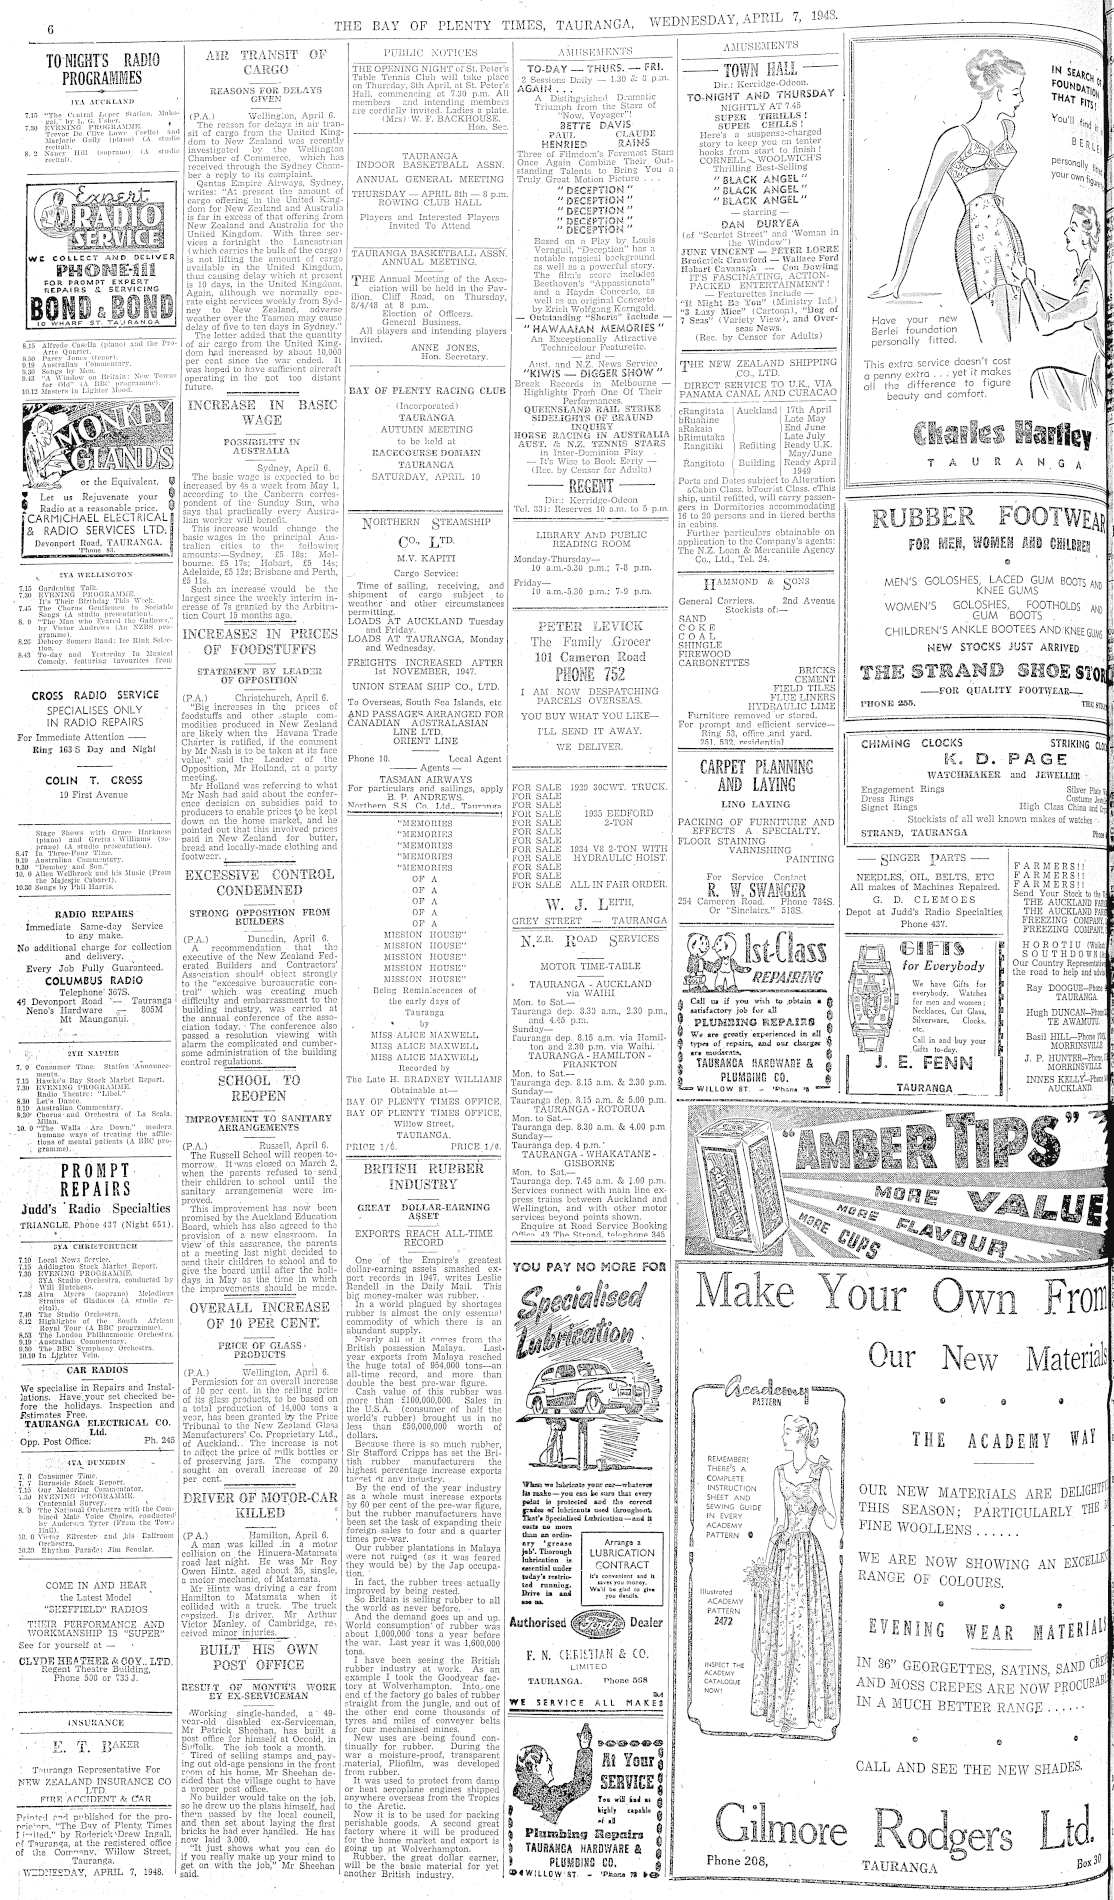 6
THE BAY OF PLENTY TIMES, TAURANGA, WEDNESDAY, APRIL 7, 1948.
TO-NIGHT'S RADIO
PROGRAMMES
1YA AUCKLAND
7.30 EVENING PROGRAMME.
Expert
RADIO
SERVICE
WE COLLECT AND DELIVER
PHONE-111
FOR PROMPT EXPERT
REPAIRS & SERVICING
BOND & BOND
10 WHARF ST. TAURANGA
8.15 Alfredo Casella (piano) and the Pro-
Arte Quartet.
8.50 Parry Jones (tenor).
9.19 Australian Commentary.
9.30 Songs by Men.
9.43 "A Window on Britain: New Towns
for Old" (A BBC programme).
10.12 Masters in Lighter Mood.
MONKEY
GLANDS
or the Equivalent.
Let us Rejuvenate your
Radio at a reasonable price.
CARMICHAEL ELECTRICAL
& RADIO SERVICES LTD.
Devonport Road, TAURANGA.
'Phone 83.
2YA WELLINGTON
7.15 Gardening Talk.
7.30 EVENING PROGRAMME.
It's Their Birthday This Week.
7.45 The Chorus Gentlemen in Sociable
Songs (A studio presentation).
8. 0 "The Man who Feared the Gallows,"
by Victor Andrews (An NZBS pro-
gramme).
8.26 Debroy Somers Band: Ice Rink Selec-
tion.
8.43 To-day and Yesterday in Musical
Comedy, featuring favourites from
CROSS RADIO SERVICE
SPECIALISES ONLY
IN RADIO REPAIRS
For Immediate Attention —
Ring 163S Day and Night
COLIN T. CROSS
19 First Avenue
Stage Shows with Grace Harkness
(piano) and Gretta Williams (so-
prano) (A studio presentation).
8.47 In Three-Four Time.
9.19 Australian Commentary.
9.30 "Dombey and Son."
10. 0 Allen Wellbrock and his Music (From
the Majestic Cabaret).
10.30 Songs by Phil Harris.
RADIO REPAIRS
Immediate Same-day Service
to any make.
No additional charge for collection
and delivery.
Every Job Fully Guaranteed.
COLUMBUS RADIO
Telephone 367S.
Devonport Road — Tauranga
Neno's Hardware — 805M
Mt Maunganui.
2YH NAPIER
7. 0 Consumer Time. Station Announce-
ments.
7.15 Hawke's Bay Stock Market Report.
7.30 EVENING PROGRAMME.
Radio Theatre: "Libel."
8.30 Let's Dance.
9.19 Australian Commentary.
9.30 Chorus and Orchestra of La Scala,
Milan.
10. 0 "The Walls Are Down," modern
humane ways of treating the afflic-
tions of mental patients (A BBC pro-
gramme).
PROMPT
REPAIRS
Judd's Radio Specialties
TRIANGLE. Phone 437 (Night 651).
3YA CHRISTCHURCH
7.10 Local News Service.
7.15 Addington Stock Market Report.
7.30 EVENING PROGRAMME.
3YA Studio Orchestra, conducted by
Will Hutchens.
7.38 Alva Myers (soprano) Melodious
Strains of Gladness (A studio re-
cital).
7.49 The Studio Orchestra.
8.12 Highlights of the South African
Royal Tour (A BBC programme).
8.53 The London Philharmonic Orchestra.
9.19 Australian Commentary.
9.30 The BBC Symphony Orchestra.
10.10 In Lighter Vein.
CAR RADIOS
We specialise in Repairs and Instal-
lations. Have your set checked be-
fore the holidays. Inspection and
Estimates Free.
TAURANGA ELECTRICAL CO.
Ltd.
Opp. Post Office. Ph. 245
4YA DUNEDIN
7. 0 Consumer Time.
7. 7 Burnside Stock Report.
7.15 Our Motoring Commentator.
7.30 EVENING PROGRAMME
Centennial Survey.
8. 0 The National Orchestra with the Com-
bined Male Voice Choirs, conducted
by Andersen Tyrer (From the Town
Hall).
10. 0 Victor Silvester and his Ballroom
Orchestra.
10.23 Rhythm Parade: Jim Scoular.
COME IN AND HEAR
the Latest Model
"SHEFFIELD" RADIOS
THEIR PERFORMANCE AND
WORKMANSHIP IS "SUPER"
See for yourself at —
CLYDE HEATHER & COY., LTD.
Regent Theatre Building,
Phone 500 or 735 J.
INSURANCE
E. T. BAKER
Tauranga Representative For
NEW ZEALAND INSURANCE CO
LTD
FIRE ACCIDENT & CAR
Printed and published for the pro-
prietors, "The Bay of Plenty Times
Limited," by Roderick Drew Ingall,
of Tauranga, at the registered office
of the Company, Willow Street,
Tauranga.
WEDNESDAY, APRIL 7, 1948.
AIR TRANSIT OF
CARGO
REASONS FOR DELAYS
GIVEN
(P.A.) Wellington, April 6.
The reason for delays in air tran-
sit of cargo from the United King-
dom to New Zealand was recently
investigated by the Wellington
Chamber of Commerce, which has
received through the Sydney Cham-
ber a reply to its complaint.
Qantas Empire Airways, Sydney,
writes: "At present the amount of
cargo offering in the United King-
dom for New Zealand and Australia
is far in excess of that offering from
New Zealand and Australia for the
United Kingdom. With three ser-
vices a fortnight the Lancastrian
(which carries the bulk of the cargo)
is not lifting the amount of cargo
available in the United Kingdom,
thus causing delay which at present
is 19 days, in the United Kingdom.
Again, although we normally ope-
rate eight services weekly from Syd-
ney to New Zealand, adverse
weather over the Tasman may cause
delay of five to ten days in Sydney."
The letter added that the quantity
of air cargo from the United King-
dom had increased by about 10,000
per cent since the war ended. It
was hoped to have sufficient aircraft
operating in the not too distant
future.
INCREASE IN BASIC
WAGE
POSSIBILITY IN
AUSTRALIA
Sydney, April 6.
The basic wage is expected to be
increased by 4s a week from May 1,
according to the Canberra corres-
pondent of the Sunday Sun, who
says that practically every Austra-
lian worker will benefit.
This increase would change the
basic wages in the principal Aus-
tralian cities to the following
amounts:—Sydney, £5 18s; Mel-
bourne, £5 17s; Hobart, £5 14s;
Adelaide, £5 12s; Brisbane and Perth,
£5 11s.
Such an increase would be the
largest since the weekly interim in-
crease of 7s granted by the Arbitra-
tion Court 15 months ago.
INCREASES IN PRICES
OF FOODSTUFFS
STATEMENT BY LEADER
OF OPPOSITION
(P.A.) Christchurch, April 6.
"Big increases in the prices of
foodstuffs and other staple com-
modities produced in New Zealand
are likely when the Havana Trade
Charter is ratified, if the comment
by Mr Nash is to be taken at its face
value," said the Leader of the
Opposition, Mr Holland, at a party
meeting.
Mr Holland was referring to what
Mr Nash had said about the confer-
ence decision on subsidies paid to
producers to enable prices to be kept
down on the home market, and he
pointed out that this involved prices
paid in New Zealand for butter,
bread and locally-made clothing and
footwear.
EXCESSIVE CONTROL
CONDEMNED
STRONG OPPOSITION FROM
BUILDERS
(P.A.) Dunedin, April 6.
A recommendation that the
executive of the New Zealand Fed-
erated Builders and Contractors'
Association should object strongly
to the "excessive bureaucratic con-
trol" which was creating much
difficulty and embarrassment to the
building industry, was carried at
the annual conference of the asso-
ciation today. The conference also
passed a resolution viewing with
alarm the complicated and cumber-
some administration of the building
control regulations.
SCHOOL TO
REOPEN
IMPROVEMENT TO SANITARY
ARRANGEMENTS
(P.A.) Russell, April 6.
The Russell School will reopen to-
morrow. It was closed on March 2,
when the parents refused to send
their children to school until the
sanitary arrangements were im-
proved.
This improvement has now been
promised by the Auckland Education
Board, which has also agreed to the
provision of a new classroom. In
view of this assurance, the parents
at a meeting last night decided to
send their children to school and to
give the board until after the holi-
days in May as the time in which
the improvements should be made.
OVERALL INCREASE
OF 10 PER CENT.
PRICE OF GLASS
PRODUCTS
(P.A.) Wellington, April 6.
Permission for an overall increase
of 10 per cent. in the selling price
of its glass products, to be based on
a total production of 14,000 tons a
year, has been granted by the Price
Tribunal to the New Zealand Glass
Manufacturers' Co. Proprietary Ltd.,
of Auckland. The increase is not
to affect the price of milk bottles or
of preserving jars. The company
sought an overall increase of 20
per cent.
DRIVER OF MOTOR-CAR
KILLED
(P.A.) Hamilton, April 6.
A man was killed in a motor
collision on the Hinuera-Matamata
road last night. He was Mr Roy
Owen Hintz, aged about 35, single,
a motor mechanic, of Matamata.
Mr Hintz was driving a car from
Hamilton to Matamata when it
collided with a truck. The truck
capsized. Its driver, Mr Arthur
Victor Manley, of Cambridge, re-
ceived minor injuries.
BUILT HIS OWN
POST OFFICE
RESULT OF MONTH'S WORK
BY EX-SERVICEMAN
Working single-handed, a 49-
year-old disabled ex-Serviceman,
Mr Patrick Sheehan, has built a
post office for himself at Occold, in
Suffolk. The job took a month.
Tired of selling stamps and pay-
ing out old-age pensions in the front
room of his home, Mr Sheehan de-
cided that the village ought to have
a proper post office.
No builder would take on the job,
so he drew up the plans himself, had
them passed by the local council,
and then set about laying the first
bricks he had ever handled. He has
now laid 3,000.
"It just shows what you can do
if you really make up your mind to
get on with the job," Mr Sheehan
said.
PUBLIC NOTICES
THE OPENING NIGHT of St. Peter's
Table Tennis Club will take place
on Thursday, 8th April, at St. Peter's
Hall, commencing at 7.30 p.m. All
members and intending members
are cordially invited. Ladies a plate.
(Mrs) W. F. BACKHOUSE,
Hon. Sec.
TAURANGA
INDOOR BASKETBALL ASSN.
ANNUAL GENERAL MEETING
THURSDAY — APRIL 8th — 8 p.m.
ROWING CLUB HALL
Players and Interested Players
Invited To Attend
TAURANGA BASKETBALL ASSN.
ANNUAL MEETING.
THE Annual Meeting of the Asso-
ciation will be held in the Pav-
ilion, Cliff Road, on Thursday,
8/4/48 at 8 p.m.
Election of Officers.
General Business.
All players and intending players
invited.
ANNE JONES,
Hon. Secretary.
BAY OF PLENTY RACING CLUB
(Incorporated)
TAURANGA
AUTUMN MEETING
to be held at
RACECOURSE DOMAIN
TAURANGA
SATURDAY, APRIL 10
NORTHERN STEAMSHIP
CO., LTD.
M.V. KAPITI
Cargo Service:
Time of sailing, receiving, and
shipment of cargo subject to
weather and other circumstances
permitting.
LOADS AT AUCKLAND Tuesday
and Friday.
LOADS AT TAURANGA, Monday
and Wednesday.
FREIGHTS INCREASED AFTER
1st NOVEMBER, 1947.
UNION STEAM SHIP CO., LTD.
To Overseas, South Sea Islands, etc
AND PASSAGES ARRANGED FOR
CANADIAN AUSTRALASIAN
LINE LTD.
ORIENT LINE
Phone 10. Local Agent
— Agents —
TASMAN AIRWAYS
For particulars and sailings, apply
B. P. ANDREWS,
Northern S.S. Co. Ltd., Tauranga
"MEMORIES
"MEMORIES
"MEMORIES
"MEMORIES
"MEMORIES
OF A
OF A
OF A
OF A
OF A
MISSION HOUSE"
MISSION HOUSE"
MISSION HOUSE"
MISSION HOUSE"
MISSION HOUSE"
Being Reminiscences of
the early days of
Tauranga
by
MISS ALICE MAXWELL,
MISS ALICE MAXWELL,
MISS ALICE MAXWELL
Recorded by
The Late H. BRADNEY WILLIAMS
Obtainable at—
BAY OF PLENTY TIMES OFFICE,
BAY OF PLENTY TIMES OFFICE,
Willow Street,
TAURANGA.
PRICE 1/6. PRICE 1/6.
BRITISH RUBBER
INDUSTRY
GREAT DOLLAR-EARNING
ASSET
EXPORTS REACH ALL-TIME
RECORD
One of the Empire's greatest
dollar-earning assets smashed ex-
port records in 1947, writes Leslie
Randell in the Daily Mail. This
big money-maker was rubber.
In a world plagued by shortages
rubber is almost the only essential
commodity of which there is an
abundant supply.
Nearly all of it comes from the
British possession Malaya. Last
year exports from Malaya reached
the huge total of 954,000 tons—an
all-time record, and more than
double the best pre-war figure.
Cash value of this rubber was
more than £100,000,000. Sales in
the U.S.A. (consumer of half the
world's rubber) brought us in no
less than £50,000,000 worth of
dollars.
Because there is so much rubber,
Sir Stafford Cripps has set the Bri-
tish rubber manufacturers the
highest percentage increase exports
target of any industry.
By the end of the year industry
as a whole must increase exports
by 60 per cent of the pre-war figure,
but the rubber manufacturers have
been set the task of expanding their
foreign sales to four and a quarter
times pre-war.
Our rubber plantations in Malaya
were not ruined (as it was feared
they would be) by the Jap occupa-
tion.
In fact, the rubber trees actually
improved by being rested.
So Britain is selling rubber to all
the world as never before.
And the demand goes up and up.
World consumption of rubber was
about 1,000,000 tons a year before
the war. Last year it was 1,600,000
tons.
I have been seeing the British
rubber industry at work. As an
example I took the Goodyear fac-
tory at Wolverhampton. Into one
end of the factory go bales of rubber
straight from the jungle, and out of
the other end come thousands of
tyres and miles of conveyer belts
for our mechanised mines.
New uses are being found con-
tinually for rubber. During the
war a moisture-proof, transparent
material, Pliofilm, was developed
from rubber.
It was used to protect from damp
or heat aeroplane engines shipped
anywhere overseas from the Tropics
to the Arctic.
Now it is to be used for packing
perishable goods. A second great
factory where it will be produced
for the home market and export is
going up at Wolverhampton.
Rubber, the great dollar earner,
will be the basic material for yet
another British industry.
AMUSEMENTS
TO-DAY — THURS. — FRI.
2 Sessions Daily — 1.30 & 8 p.m.
AGAIN . . .
A Distinguished Dramatic
Triumph from the Stars of
"Now, Voyager"!
BETTE DAVIS
PAUL CLAUDE
HENRIED RAINS
Three of Filmdom's Foremost Stars
Once Again Combine Their Out-
standing Talents to Bring You a
Truly Great Motion Picture . . .
"DECEPTION"
"DECEPTION"
"DECEPTION"
"DECEPTION"
"DECEPTION"
"DECEPTION"
Based on a Play by Louis
Verneuil, "Deception" has a
notable musical background
as well as a powerful story.
The film's score includes
Beethoven's "Appassionata"
and a Haydn Concerto, as
well as an original Concerto
by Erich Wolfgang Korngold.
— Outstanding "Shorts" Include —
"HAWAIIAN MEMORIES"
An Exceptionally Attractive
Technicolour Featurette.
— and —
Aust. and N.Z. News Service
"KIWIS — DIGGER SHOW"
Break Records in Melbourne —
Highlights From One Of Their
Performances.
QUEENSLAND RAIL STRIKE
SIDELIGHTS OF BRAUND
INQUIRY
HORSE RACING IN AUSTRALIA
AUST. & N.Z. TENNIS STARS
in Inter-Dominion Play —
— It's Wise to Book Early —
(Rec. by Censor for Adults)
REGENT
Dir.: Kerridge-Odeon
Tel. 331: Reserves 10 a.m. to 5 p.m.
LIBRARY AND PUBLIC
READING ROOM
Monday-Thursday—
10 a.m.-5.30 p.m.; 7-8 p.m.
Friday—
10 a.m.-5.30 p.m.; 7-9 p.m.
PETER LEVICK
The Family Grocer
101 Cameron Road
PHONE 752
I AM NOW DESPATCHING
PARCELS OVERSEAS.
YOU BUY WHAT YOU LIKE—
I'LL SEND IT AWAY.
WE DELIVER.
FOR SALE 1929 30CWT. TRUCK.
FOR SALE
FOR SALE
FOR SALE 1935 BEDFORD
FOR SALE 2-TON
FOR SALE
FOR SALE
FOR SALE 1934 V8 2-TON WITH
FOR SALE HYDRAULIC HOIST.
FOR SALE
FOR SALE
FOR SALE ALL IN FAIR ORDER.
W. J. LEITH,
GREY STREET — TAURANGA
N.Z.R. ROAD SERVICES
MOTOR TIME-TABLE
TAURANGA - AUCKLAND
via WAIHI
Mon. to Sat.—
Tauranga dep. 8.30 a.m., 2.30 p.m.,
and 4.45 p.m.
Sunday—
Tauranga dep. 8.15 a.m. via Hamil-
ton and 2.30 p.m. via Waihi.
TAURANGA - HAMILTON -
FRANKTON
Mon. to Sat.—
Tauranga dep. 8.15 a.m. & 2.30 p.m.
Sunday—
Tauranga dep. 8.15 a.m. & 5.00 p.m.
TAURANGA - ROTORUA
Mon. to Sat.—
Tauranga dep. 8.30 a.m. & 4.00 p.m
Sunday—
Tauranga dep. 4 p.m.
TAURANGA - WHAKATANE -
GISBORNE
Mon. to Sat.—
Tauranga dep. 7.45 a.m. & 1.00 p.m.
Services connect with main line ex-
press trains between Auckland and
Wellington, and with other motor
services beyond points shown.
Enquire at Road Service Booking
Office, 43 The Strand, telephone 345
YOU PAY NO MORE FOR
Specialised
Lubrication
When we lubricate your car—whatever
its make—you can be sure that every
point is protected and the correct
grades of lubricants used throughout.
That's Specialised Lubrication—and it
costs no more
than an ordin-
ary 'grease
job'. Thorough
lubrication is
essential under
today's restric-
ted running.
Drive in and
see us.
Arrange a
LUBRICATION
CONTRACT
It's convenient and it
saves you money.
We'll be glad to give
you details.
Authorised Ford Dealer
F. N. CHRISTIAN & CO.
LIMITED
TAURANGA. Phone 568
WE SERVICE ALL MAKES
At Your
SERVICE
You will find us
highly capable
of all
Plumbing Repairs
TAURANGA HARDWARE &
PLUMBING CO.
WILLOW ST. - 'Phone 78
AMUSEMENTS
TOWN HALL
Dir.: Kerridge-Odeon.
TO-NIGHT AND THURSDAY
NIGHTLY AT 7.45
SUPER THRILLS!
SUPER CHILLS!
Here's a suspense-charged
story to keep you on tenter
hooks from start to finish!
CORNELL WOOLWICH'S
Thrilling Best-Selling
"BLACK ANGEL"
"BLACK ANGEL"
"BLACK ANGEL"
— starring —
DAN DURYEA
(of "Scarlet Street" and "Woman in
the Window")
JUNE VINCENT — PETER LORRE
Broderick Crawford — Wallace Ford
Hobart Cavanagh — Con Dowling
IT'S FASCINATING, ACTION-
PACKED ENTERTAINMENT!
— Featurettes Include —
"It Might Be You" (Ministry Inf.)
"3 Lazy Mice" (Cartoon), "Dog of
7 Seas" (Variety View), and Over-
seas News.
(Rec. by Censor for Adults)
THE NEW ZEALAND SHIPPING
CO., LTD.
DIRECT SERVICE TO U.K., VIA
PANAMA CANAL AND CURACAO
cRangitata Auckland 17th April
bRuahine Late May
aRakaia End June
bRimutaka Late July
Rangitiki Refitting Ready U.K.
May/June
Rangitoto Building Ready April
1949
Ports and Dates subject to Alteration
aCabin Class. bTourist Class. cThis
ship, until refitted, will carry passen-
gers in Dormitories accommodating
16 to 20 persons and in tiered berths
in cabins.
Further particulars obtainable on
application to the Company's agents:
The N.Z. Loan & Mercantile Agency
Co., Ltd., Tel. 24.
HAMMOND & SONS
General Carriers, 2nd Avenue
Stockists of:—
SAND
COKE
COAL
SHINGLE
FIREWOOD
CARBONETTES
BRICKS
CEMENT
FIELD TILES
FLUE LINERS
HYDRAULIC LIME
Furniture removed or stored.
For prompt and efficient service—
Ring 53, office and yard.
251, 532, residential
CARPET PLANNING
AND LAYING
LINO LAYING
PACKING OF FURNITURE AND
EFFECTS A SPECIALTY.
FLOOR STAINING
VARNISHING
PAINTING
For Service Contact
R. W. SWANGER
254 Cameron Road. Phone 784S.
Or "Sinclairs," 518S.
1st-Class
REPAIRING
Call us if you wish to obtain a
satisfactory job for all
PLUMBING REPAIRS
We are greatly experienced in all
types of repairs, and our charges
are moderate.
TAURANGA HARDWARE &
PLUMBING CO.
WILLOW ST. - 'Phone 78
IN SEARCH OF
FOUNDATION
THAT FITS!
You'll find it
BERLEI
personally fitted
your own figure
Have your new
Berlei foundation
personally fitted.
This extra service doesn't cost
a penny extra . . . yet it makes
all the difference to figure
beauty and comfort.
Charles Hartley
TAURANGA
RUBBER FOOTWEAR
FOR MEN, WOMEN AND CHILDREN
MEN'S GOLOSHES, LACED GUM BOOTS AND
KNEE GUMS
WOMEN'S GOLOSHES, FOOTHOLDS AND
GUM BOOTS
CHILDREN'S ANKLE BOOTEES AND KNEE GUMS
NEW STOCKS JUST ARRIVED
THE STRAND SHOE STOR
—FOR QUALITY FOOTWEAR—
PHONE 255.
CHIMING CLOCKS STRIKING CLOC
K. D. PAGE
WATCHMAKER and JEWELLER
Engagement Rings Silver Plate
Dress Rings Costume Jewel
Signet Rings High Class China and
Stockists of all well known makes of watches
STRAND, TAURANGA
SINGER PARTS
NEEDLES, OIL, BELTS, ETC
All makes of Machines Repaired.
G. D. CLEMOES
Depot at Judd's Radio Specialties
Phone 437.
GIFTS
for Everybody
We have Gifts for
everybody. Watches
for men and women;
Necklaces, Cut Glass,
Silverware, Clocks,
etc.
Call in and buy your
Gifts to-day.
J. E. FENN
TAURANGA
FARMERS!!
FARMERS!!
FARMERS!!
Send Your Stock to the
THE AUCKLAND FAR
THE AUCKLAND FAR
FREEZING COMPANY,
FREEZING COMPANY,
HOROTIU
SOUTHDOWN
Our Country Representative
the road to help and advis
Ray DOOGUE—Phone
TAURANGA.
Hugh DUNCAN—Phone
TE AWAMUTU.
Basil HILL—Phone
MORRINSVILLE
J. P. HUNTER—Phone
MORRINSVILLE.
INNES KELLY—Phone
AUCKLAND.
"AMBER TIPS"
MORE VALUE
MORE FLAVOUR
MORE CUPS
Make Your Own From
Our New Materials
THE ACADEMY WAY
Academy
PATTERN
REMEMBER!
THERE'S A
COMPLETE
INSTRUCTION
SHEET AND
SEWING GUIDE
IN EVERY
ACADEMY
PATTERN
Illustrated
ACADEMY
PATTERN
2472
INSPECT THE
ACADEMY
CATALOGUE
NOW!
OUR NEW MATERIALS ARE DELIGHTF
THIS SEASON; PARTICULARLY THE
FINE WOOLLENS ......
WE ARE NOW SHOWING AN EXCELLEN
RANGE OF COLOURS.
EVENING WEAR MATERIALS
IN 36" GEORGETTES, SATINS, SAND CREP
AND MOSS CREPES ARE NOW PROCURAB
IN A MUCH BETTER RANGE ......
CALL AND SEE THE NEW SHADES.
Gilmore Rodgers Ltd.
Phone 208, TAURANGA Box 30